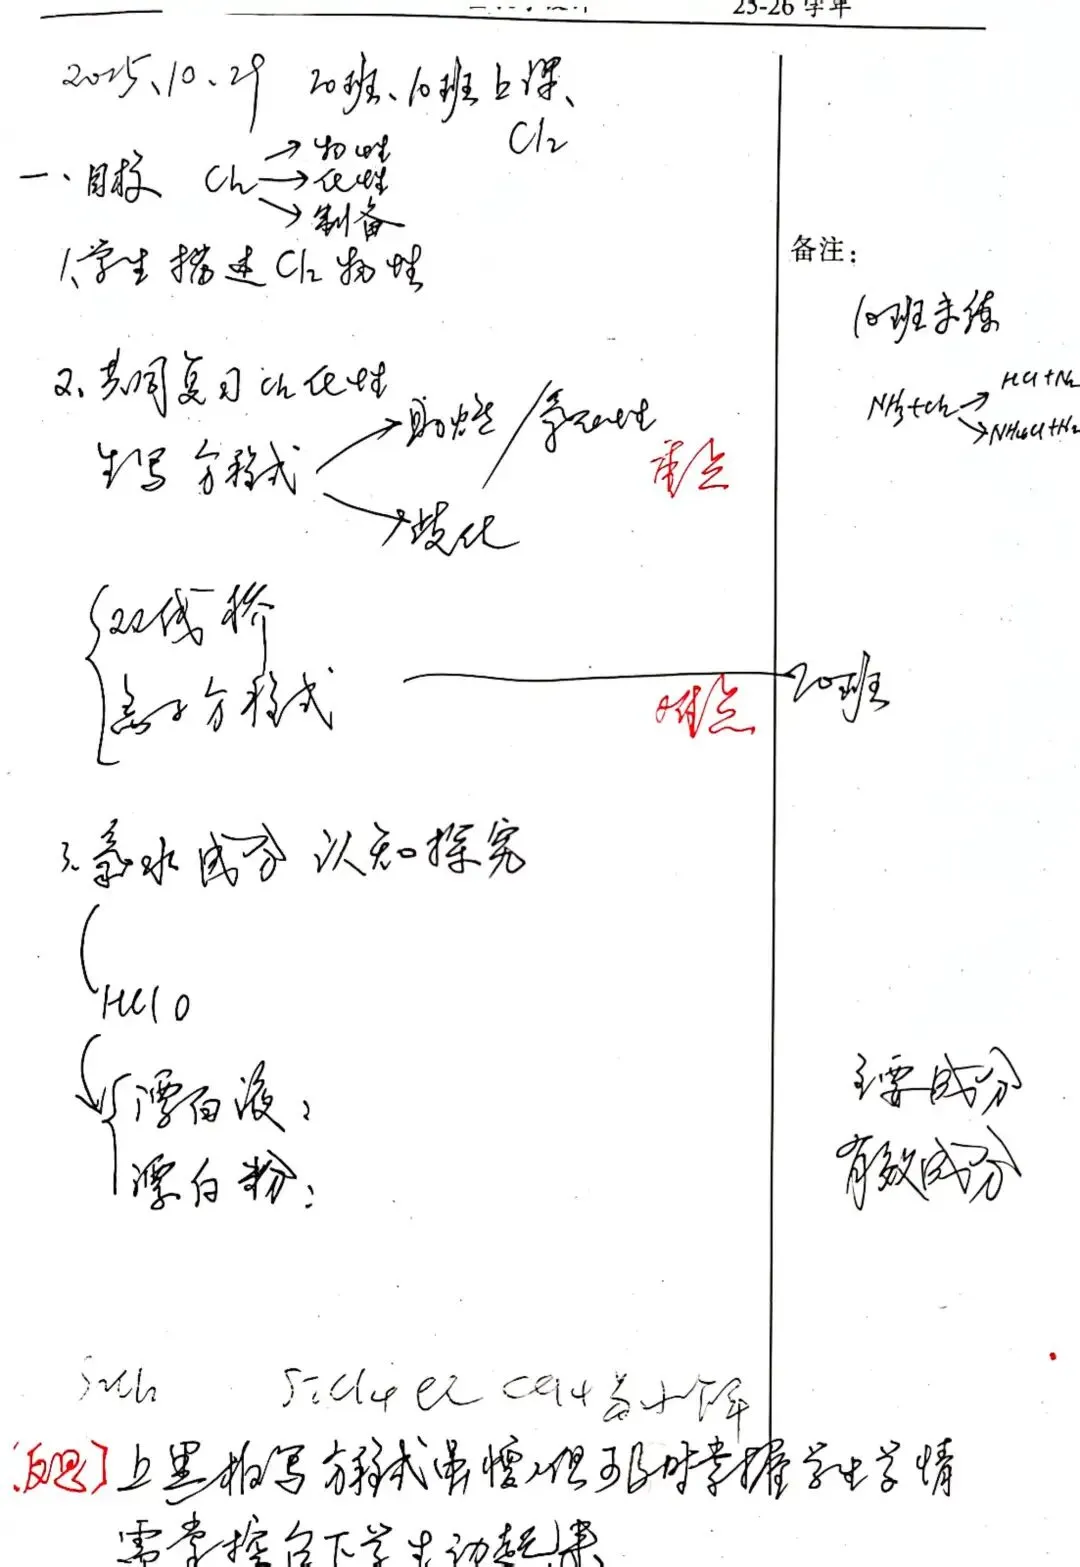 23-26 学年
2025、10、29 20班、10班上课、
Cl₂
一、目标 Cl₂ → 物性
→ 化性
→ 制备
1、学生描述Cl₂物性
备注：
10班未练
2、共同复习Cl₂化性
NH₃+Cl₂ → HCl+N₂
→ NH₄Cl+N₂
生写方程式 → 助燃 / 氧化性
重点
→ 歧化
双线桥
离子方程式
难点
20班
3、氯水成分认知探究
HClO
漂白液：
漂白粉：
主要成分
有效成分
S₂Cl₂ SiCl₄ CCl₄
[反思] 上黑板写方程式虽慢，但可及时掌握学生学情
需掌控台下学生动起来